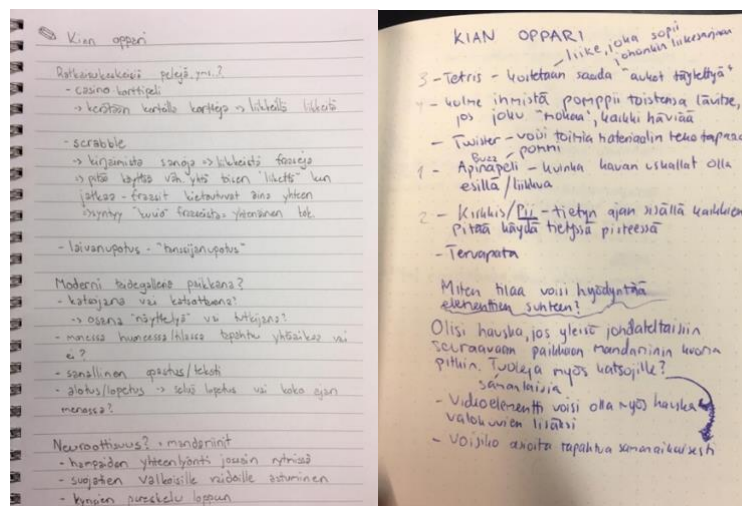 Kian oppari
Ratkaisukeskeisiä pelejä, yms.?
- casino korttipeli
-> kerätään kortilla kortteja -> liikkeillä liikkeitä
- scrabble
-> kirjaimista sanoja -> liikkeistä fraaseja
-> pitää käyttää väh. yhtä toisen "liikettä" kun
jatkaa - fraasit kietoutuvat aina yhteen
-> syntyy "kuvio" fraaseista, yhtenäinen tok.
- laivanupotus - "tanssijanupotus"
Moderni taidegalleria paikkana?
- katsojana vai katsottavana?
-> osana "näyttelyä" vai tutkijana?
- monessa huoneessa/tilassa tapahtuu yhtäaikaa vai
ei?
- sanallinen opastus/teksti
- aloitus/lopetus -> selkeä lopetus vai koko ajan
menossa?
Neuroottisuus? + mandariinit
- hampaiden yhteenlyönti jossain rytmissä
- suojatien valkoisille raidoille astuminen
- kynsien pureskelu loppuun
KIAN OPPARI
liike, joka sopii
johonkin liikesarjaan
3 - Tetris - koitetaan saada "aukot täytettyä"
4 - kolme ihmistä pomppii toistensa lävitse,
jos joku "mokaa", kaikki häviää
- Twister - voisi toimia materiaalin teko tapana
Buzz pommi
1 - Apinapeli - kuinka kauan uskallat olla
esillä / liikkua
2 - Kirkkis/Pii - tietyn ajan sisällä kaikkien
pitää käydä tietyssä pisteessä
- Tervapata
Miten tilaa voisi hyödyntää
elementtien suhteen?
Olisi hauska, jos yleisö johdateltaisiin
seuraavaan paikkaan mandariinin kuoria
pitkin. Tuoleja myös katsojille?
samanlaisia
- Videoelementti voisi olla myös hauska
valokuvien lisäksi
- Voisiko asioita tapahtua samanaikaisesti